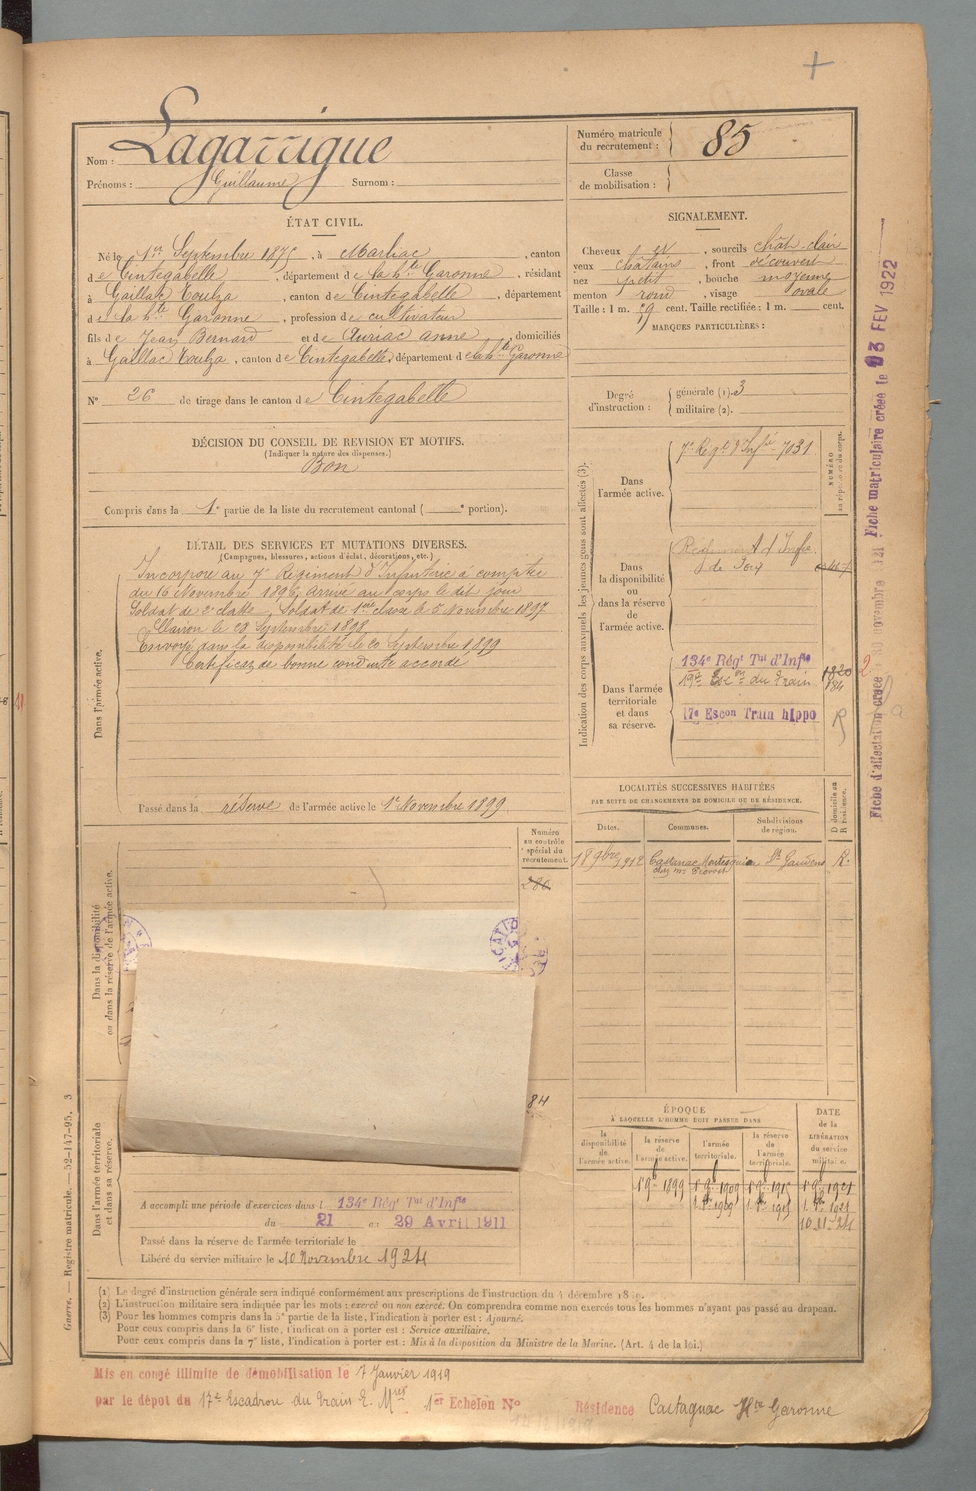 Nom : Lagarrigue
Prénoms : Guillaume Surnom :
Numéro matricule du recrutement : 85
Classe de mobilisation :
ÉTAT CIVIL.
Né le 1er Septembre 1875, à Marliac, canton
de Cintegabelle, département de la hte Garonne, résidant
à Gaillac Toulza, canton de Cintegabelle, département
de la hte Garonne, profession de cultivateur
fils de Jean Bernard et de Auriac Anne, domiciliés
à Gaillac Toulza, canton de Cintegabelle, département de la hte Garonne
N° 26 de tirage dans le canton de Cintegabelle
DÉCISION DU CONSEIL DE REVISION ET MOTIFS.
(Indiquer la nature des dispenses.)
Bon
Compris dans la 1e partie de la liste du recrutement cantonal ( e portion).
DÉTAIL DES SERVICES ET MUTATIONS DIVERSES.
(Campagnes, blessures, actions d'éclat, décorations, etc.)
Dans l'armée active.
Incorporé au 7e Régiment d'Infanterie à compter
du 16 Novembre 1896, arrivé au corps le dit jour
Soldat de 2e classe, Soldat de 1ère classe le 5 Novembre 1897
Clairon le 20 Septembre 1898
Envoyé dans la disponibilité le 20 Septembre 1899
Certificat de bonne conduite accordé
Passé dans la réserve de l'armée active le 1er Novembre 1899
Dans la disponibilité ou dans la réserve de l'armée active.
Numéro au contrôle spécial du recrutement.
280
84
Dans l'armée territoriale et dans sa réserve.
A accompli une période d'exercices dans l 134e Régt Tal d'Infie
du 21 au 29 Avril 1911
Passé dans la réserve de l'armée territoriale le
Libéré du service militaire le 10 Novembre 1924
SIGNALEMENT.
Cheveux , sourcils chât. clair
yeux châtains, front découvert
nez petit, bouche moyenne
menton rond, visage ovale
Taille : 1 m. 59 cent. Taille rectifiée : 1 m. cent.
MARQUES PARTICULIÈRES :
Degré d'instruction : générale (1). 3
militaire (2).
Indication des corps auxquels les jeunes gens sont affectés (3).
NUMÉRO au répertoire du corps.
Dans l'armée active.
7e Régt d'Infie 7031
Dans la disponibilité ou dans la réserve de l'armée active.
Régiment d'Infie
de
Dans l'armée territoriale et dans sa réserve.
134e Régt Tal d'Infie 1820
19e Escon du Train 184
17e Escon Train hippo R
LOCALITÉS SUCCESSIVES HABITÉES
PAR SUITE DE CHANGEMENTS DE DOMICILE OU DE RÉSIDENCE.
Dates. Communes. Subdivisions de région. D domicile ou R résidence.
18 9bre 1912 St Gaudens R.
ÉPOQUE
À LAQUELLE L'HOMME DOIT PASSER DANS
la disponibilité de l'armée active. la réserve de l'armée active. l'armée territoriale. la réserve de l'armée territoriale.
DATE de la LIBÉRATION du service militaire.
1er 9b 1899 1er 9b 1909 1er 9b 1915 1er 9b 1921
10.11.24
(1) Le degré d'instruction générale sera indiqué conformément aux prescriptions de l'instruction du 4 décembre 18
(2) L'instruction militaire sera indiquée par les mots : exercé ou non exercé. On comprendra comme non exercés tous les hommes n'ayant pas passé au drapeau.
(3) Pour les hommes compris dans la 5e partie de la liste, l'indication à porter est : Ajourné.
Pour ceux compris dans la 6e liste, l'indication à porter est : Service auxiliaire.
Pour ceux compris dans la 7e liste, l'indication à porter est : Mis à la disposition du Ministre de la Marine. (Art. 4 de la loi.)
Mis en congé illimité de démobilisation le 7 Janvier 1919
par le dépôt du 17e Escadron du Train E. Mres 1er Echelon N° Résidence Castagnac Hte Garonne
Guerre. — Registre matricule. — 52-147-95. 3
Fiche d'affectation créée novembre 1921 Fiche matriculaire créée le 03 FEV 1922